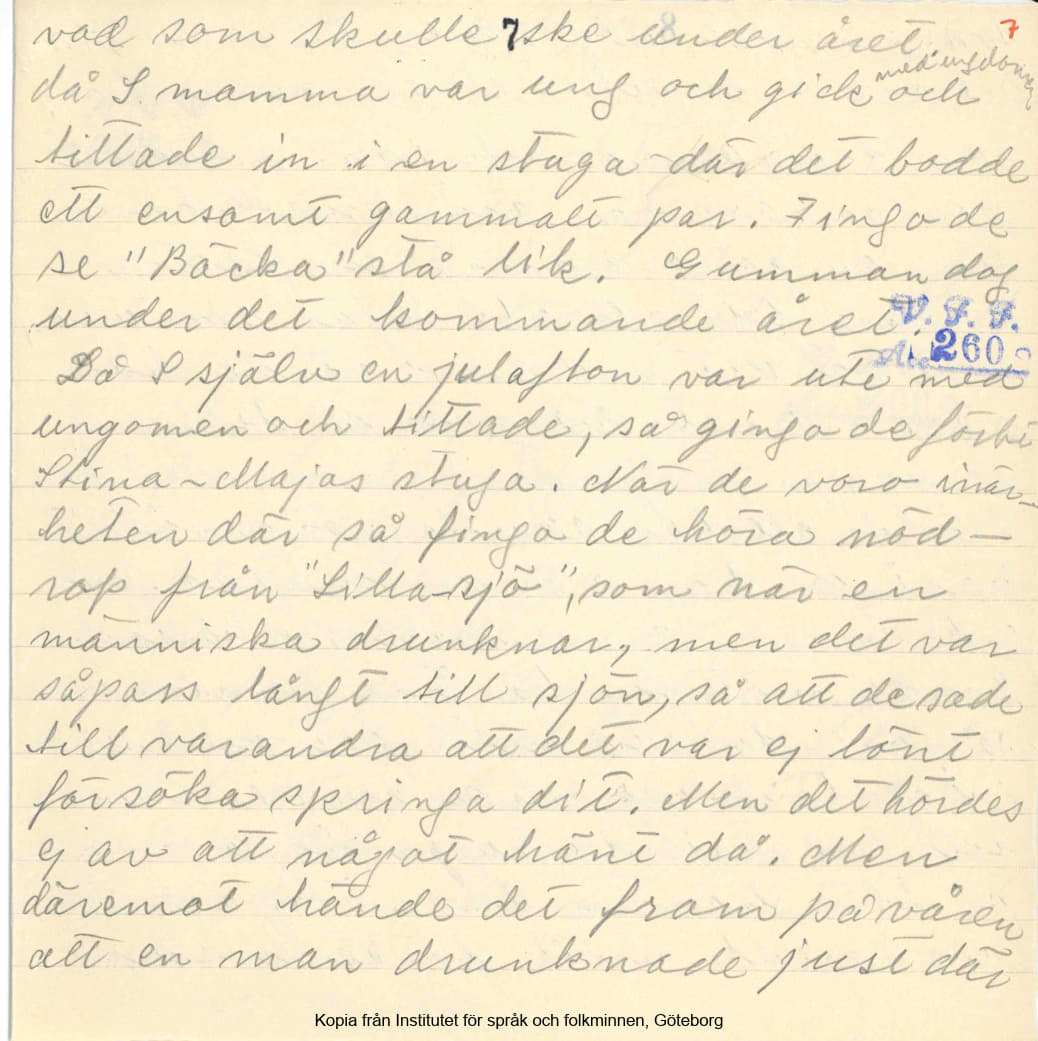 7
7
vad som skulle ske under året.
med ungdomen
då S. mamma var ung och gick och
tittade in i en stuga där det bodde
ett ensamt gammalt par. Fingo de
se "Bäcka" stå lik. Gumman dog
under det kommande året.
V. F. F.
Acc. 2609
Då S själv en julafton var ute med
ungomen och tittade, så gingo de förbi
Stina-Majas stuga. När de voro i när-
heten där så fingo de höra nöd-
rop från "Lilla-sjö", som när en
människa drunknar, men det var
såpass långt till sjön, så att de sade
till varandra att det var ej lönt
försöka springa dit. Men det hördes
ej av att något hänt då. Men
däremot hände det fram på våren
att en man drunknade just där
Kopia från Institutet för språk och folkminnen, Göteborg